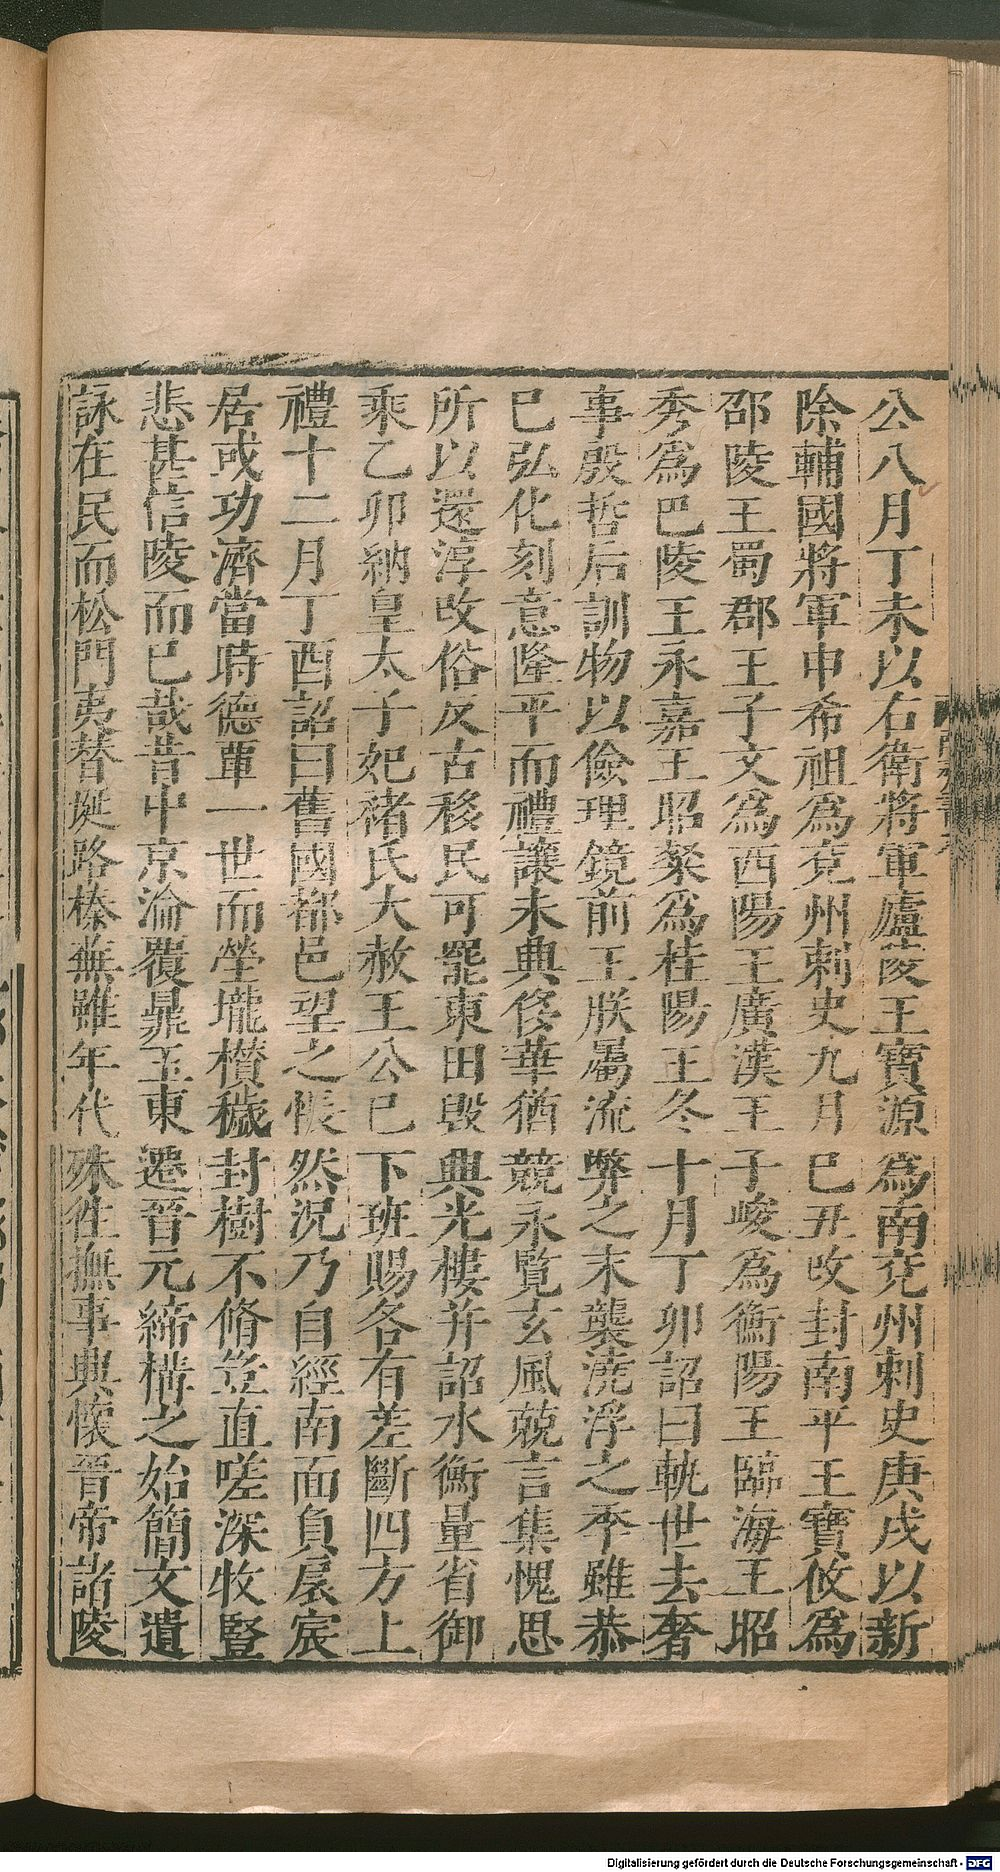 公八月丁未以右衛將軍廬陵王寶源爲南兖州刺史庚戌以新
除輔國將軍申希祖爲兖州刺史九月巳丑改封南平王寶攸爲
邵陵王蜀郡王子文爲西陽王廣漢王子峻爲衡陽王臨海王昭
秀爲巴陵王永嘉王昭粲爲桂陽王冬十月丁卯詔曰軌世去奢
事殷哲后訓物以儉理鏡前王朕屬流弊之末襲澆浮之季雖恭
巳弘化刻意隆平而禮讓未興侈華猶競永覽玄風兢言集愧思
所以還淳改俗反古移民可罷東田毀興光樓并詔水衡量省御
乘乙卯納皇太子妃褚氏大赦王公巳下班賜各有差斷四方上
禮十二月丁酉詔曰舊國都邑望之悵然況乃自經南面負扆宸
居或功濟當時德覃一世而塋壠櫕穢封樹不脩豈直嗟深牧豎
悲甚信陵而巳哉昔中京淪覆鼎玉東遷晉元締構之始簡文遺
詠在民而松門夷替埏路榛蕪雖年代殊徃撫事興懷晉帝諸陵
Digitalisierung gefördert durch die Deutsche Forschungsgemeinschaft - DFG